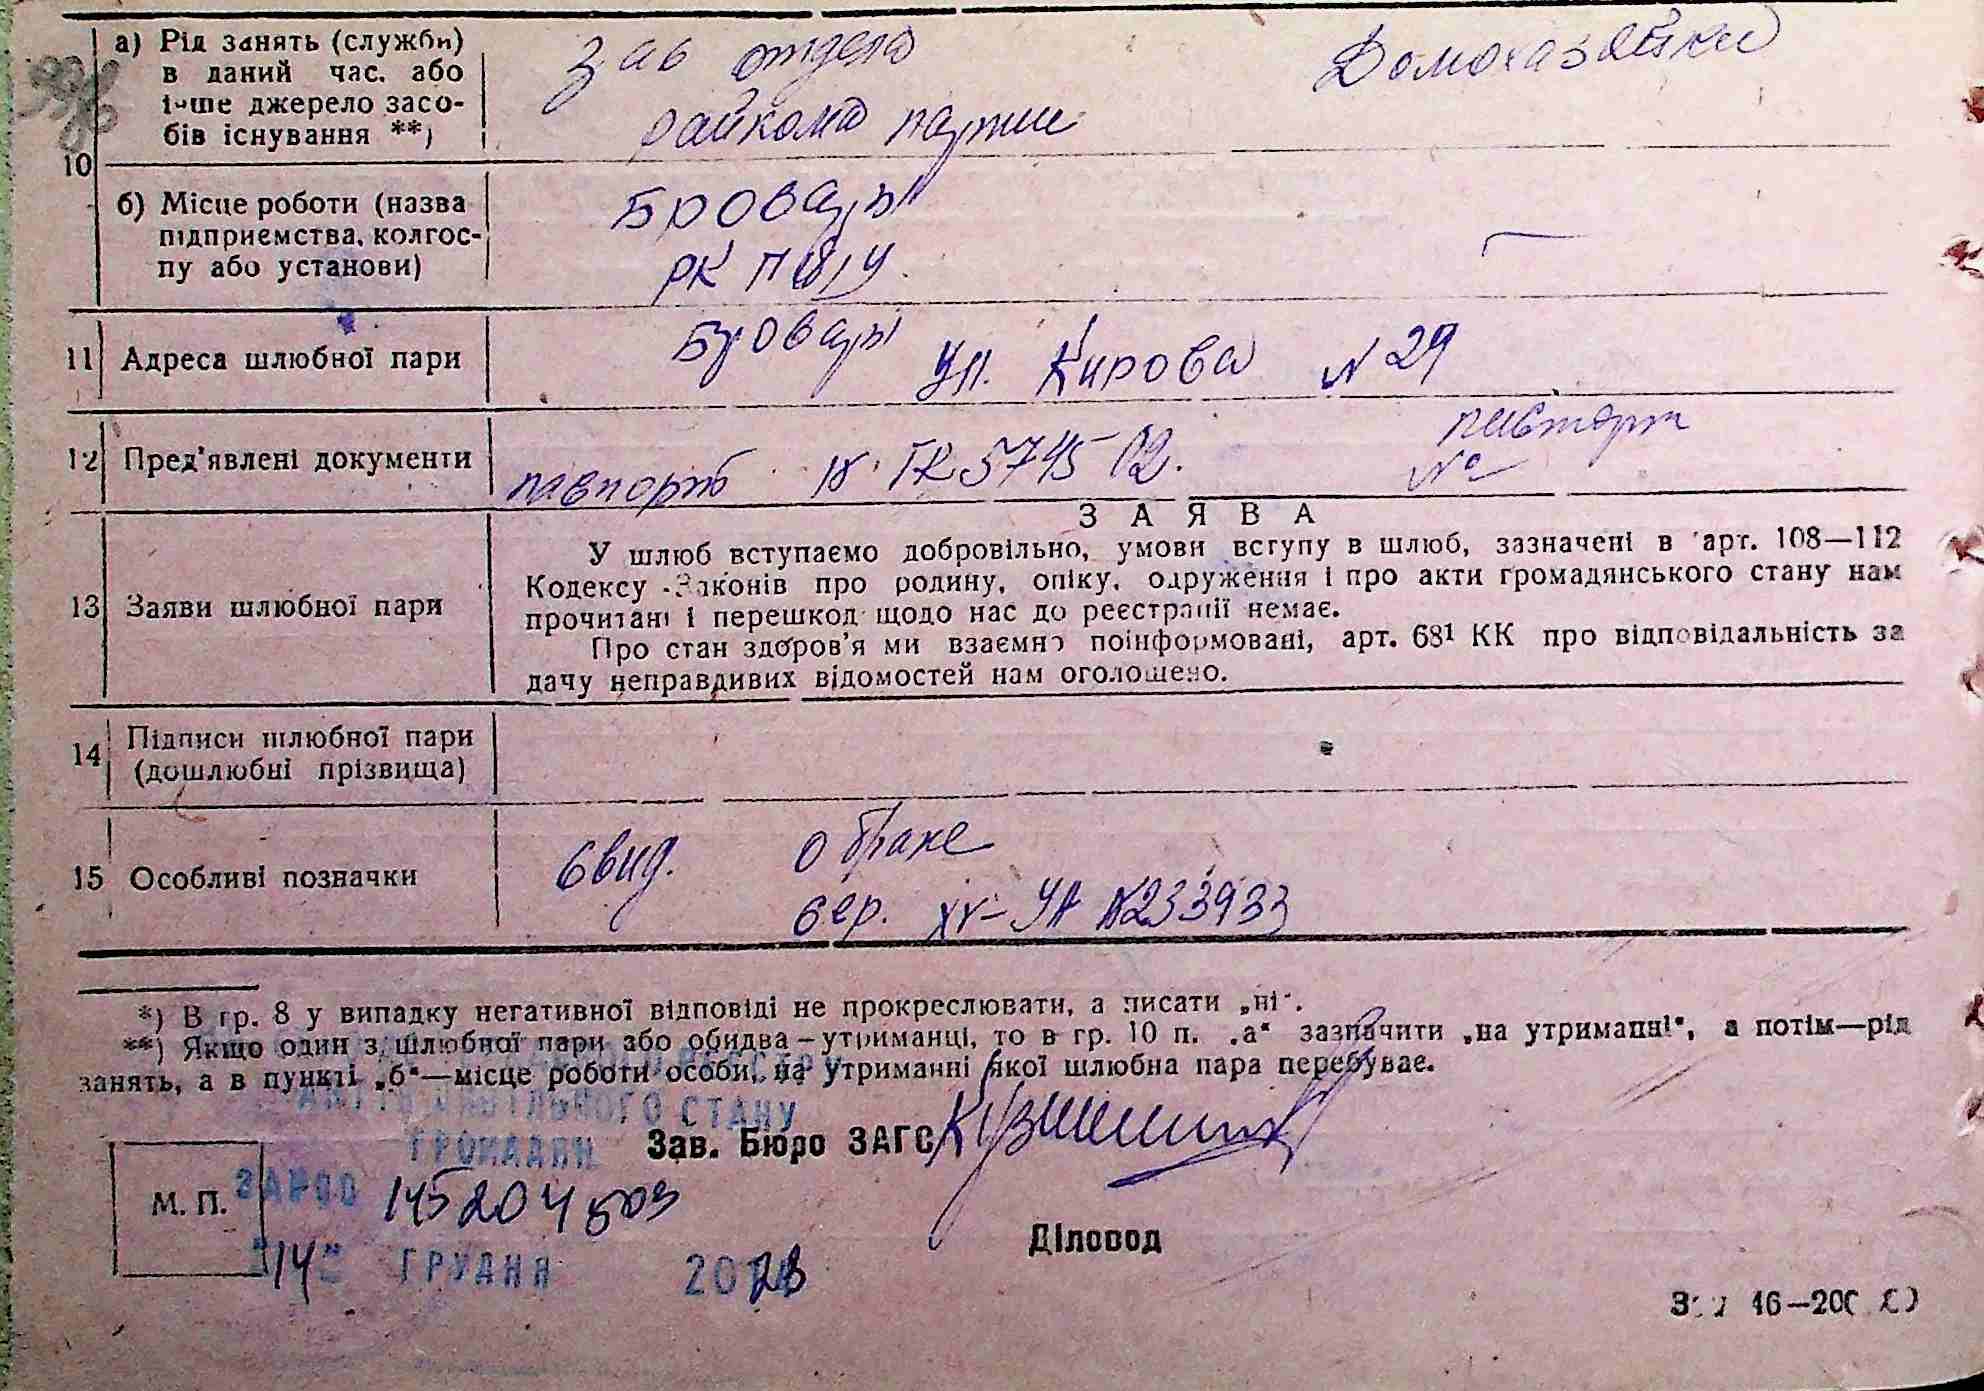 а) Рід занять (служби) в даний час, або інше джерело засобів існування **)
Зав отдела
райкома партии
Домохазяйки
10
б) Місце роботи (назва підприємства, колгоспу або установи)
Бровары
РК П(б)У.
11 Адреса шлюбної пари
Бровары
ул. Кирова N 29
12 Пред'явлені документи
паспорт
№
З А Я В А
13 Заяви шлюбної пари
У шлюб вступаємо добровільно, умови вступу в шлюб, зазначені в арт. 108—112
Кодексу Законів про родину, опіку, одруження і про акти громадянського стану нам
прочитані і перешкод щодо нас до реєстрації немає.
Про стан здоров'я ми взаємно поінформовані, арт. 68¹ КК про відповідальність за
дачу неправдивих відомостей нам оголошено.
14 Підписи шлюбної пари (дошлюбні прізвища)
15 Особливі позначки
свид. о браке
сер. XV-УА N233933
*) В гр. 8 у випадку негативної відповіді не прокреслювати, а писати „ні".
**) Якщо один з шлюбної пари або обидва — утриманці, то в гр. 10 п. „а" зазначити „на утриманні", а потім—рід
занять, а в пункті „б"—місце роботи особи, на утриманні якої шлюбна пара перебуває.
СТАНУ
Зав. Бюро ЗАГС
М. П.
145204503
Діловод
"14" ГРУДНЯ 2023
46—200